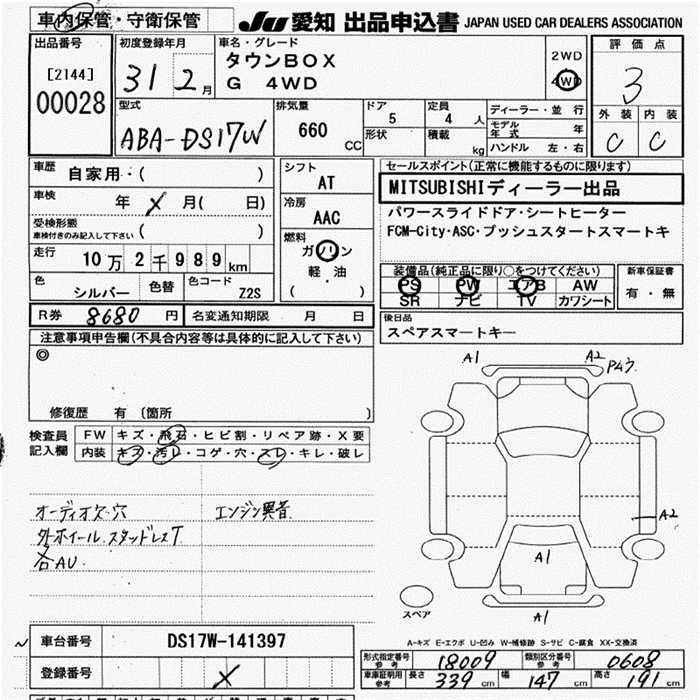 車内保管・守衛保管
JU 愛知 出品申込書 JAPAN USED CAR DEALERS ASSOCIATION
出品番号
[2144]
00028
初度登録年月
31 2 月
車名・グレード
タウンBOX
G 4WD
2WD
4WD
評価点
3
外装 内装
C C
型式
ABA-DS17W
排気量
660 CC
ドア
5
形状
定員
4 人
積載
kg
ディーラー・並行
モデル年式 年
ハンドル 左・右
車歴 自家用・( )
車検 年 X 月( 日)
受検形態
車検付きのみ記入して下さい ( )
走行 10万2千989km
色 シルバー 色替 色コード Z2S
シフト
AT
冷房
AAC
燃料
ガソリン
軽・油
( )
セールスポイント(正常に機能するものに限ります)
MITSUBISHIディーラー出品
パワースライドドア・シートヒーター
FCM-City・ASC・プッシュスタートスマートキ
装備品(純正品に限り○をつけてください)
PS PW エアB AW
SR ナビ TV カワシート
新車保証書
有・無
R券 8680 円 名変通知期限 月 日
後日品
スペアスマートキー
注意事項申告欄(不具合内容等は具体的に記入して下さい)
◎
修復歴 有 (箇所 )
検査員記入欄
FW キズ・飛石・ヒビ割・リペア跡・X要
内装 キズ・汚レ・コゲ・穴・スレ・キレ・破レ
オーディオ欠・穴 エンジン異音
外ホイール スタッドレスT
各AU
A1 A2
A2
A1
A1
スペア
A-キズ E-エクボ U-凹み W-補修跡 S-サビ C-腐食 XX-交換済
車台番号 DS17W-141397
登録番号 X
形式指定番号 参考 18009 類別区分番号 参考 0608
車庫証明用 参考 長さ 339 cm 幅 147 cm 高さ 191 cm